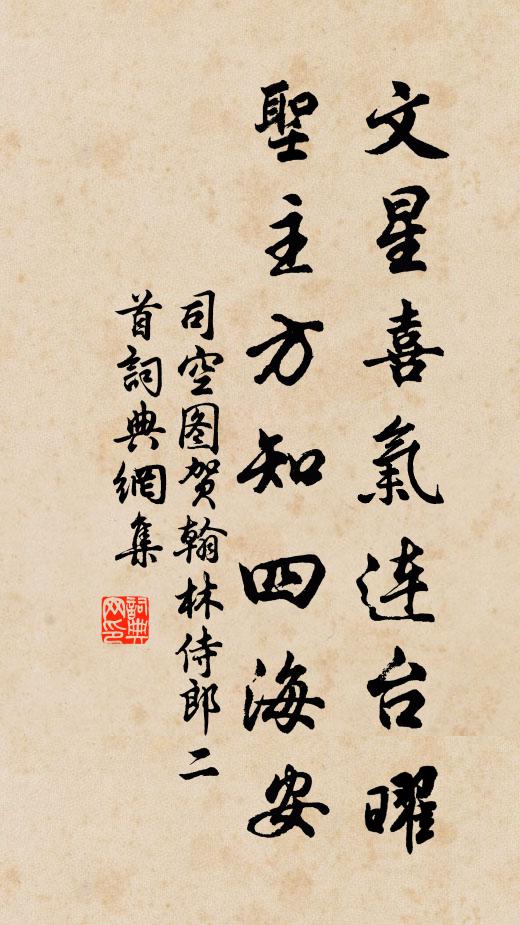 文星喜氣连台曜
聖主方知四海安
司空图贺翰林侍郎二
首詞典網集
詞典
网印